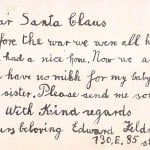 ar Santa Claus
fore the war we were all h
had a nice home. Now we a
have no milk for my baby
sister, Please send me so
With Kind regards
Edward Feld
730, E, 85 st